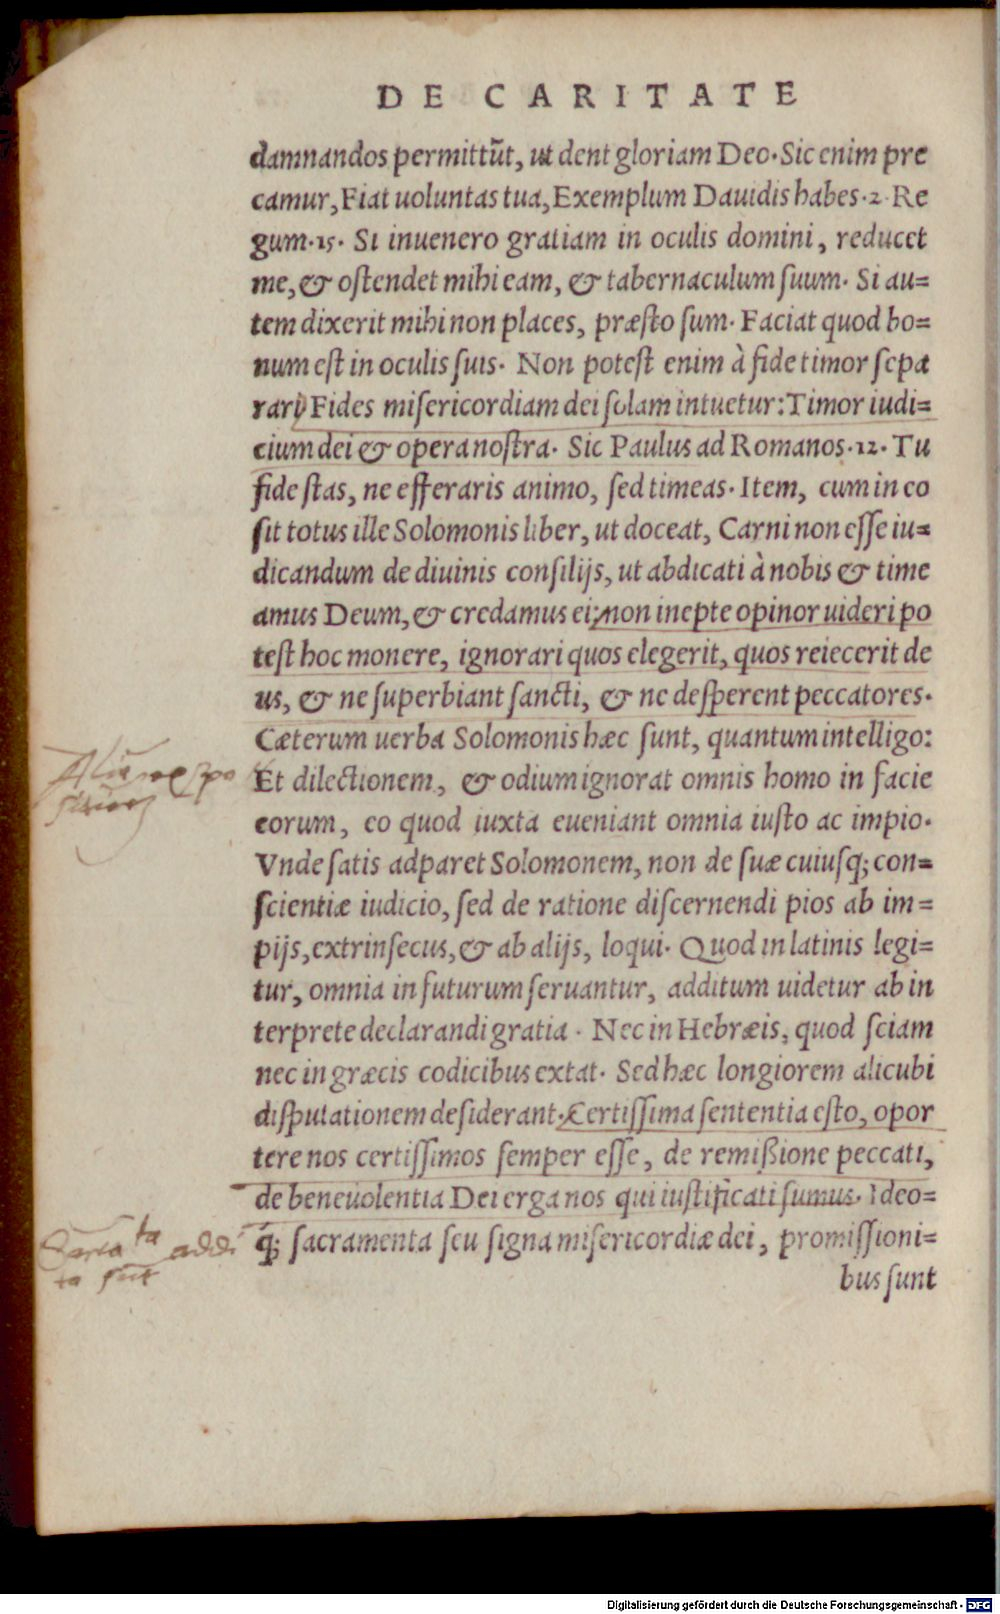 DE CARITATE
damnandos permittũt, ut dent gloriam Deo. Sic enim pre
camur, Fiat uoluntas tua, Exemplum Dauidis habes. 2. Re
gum. 15. Si inuenero gratiam in oculis domini, reducet
me, & ostendet mihi eam, & tabernaculum suum. Si au=
tem dixerit mihi non places, præsto sum. Faciat quod bo=
num est in oculis suis. Non potest enim à fide timor sepa
rari, Fides misericordiam dei solam intuetur: Timor iudi=
cium dei & opera nostra. Sic Paulus ad Romanos. 12. Tu
fide stas, ne efferaris animo, sed timeas. Item, cum in eo
sit totus ille Solomonis liber, ut doceat, Carni non esse iu=
dicandum de diuinis consilijs, ut abdicati à nobis & time
amus Deum, & credamus ei: non inepte opinor uideri po
test hoc monere, ignorari quos elegerit, quos reiecerit de
us, & ne superbiant sancti, & ne desperent peccatores.
Cæterum uerba Solomonis hæc sunt, quantum intelligo:
Et dilectionem, & odium ignorat omnis homo in facie
eorum, eo quod iuxta eueniant omnia iusto ac impio.
Vnde satis adparet Solomonem, non de suæ cuiusq; con=
scientiæ iudicio, sed de ratione discernendi pios ab im=
pijs, extrinsecus, & ab alijs, loqui. Quod in latinis legi=
tur, omnia in futurum seruantur, additum uidetur ab in
terprete declarandi gratia. Nec in Hebræis, quod sciam
nec in græcis codicibus extat. Sed hæc longiorem alicubi
disputationem desiderant. Certissima sententia esto, opor
tere nos certissimos semper esse, de remißione peccati,
de beneuolentia Dei erga nos qui iustificati sumus. Ideo=
q́; sacramenta seu signa misericordiæ dei, promissioni=
bus sunt
addi
ta sũt
Digitalisierung gefördert durch die Deutsche Forschungsgemeinschaft - DFG